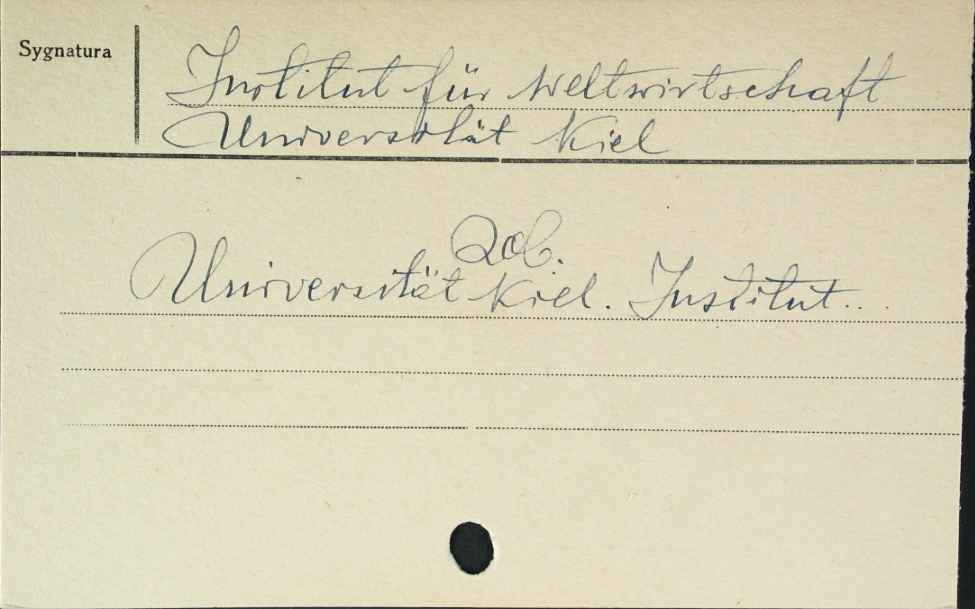 Sygnatura
Institut für Weltwirtschaft
Universität Kiel
Zob.
Universität Kiel. Institut...